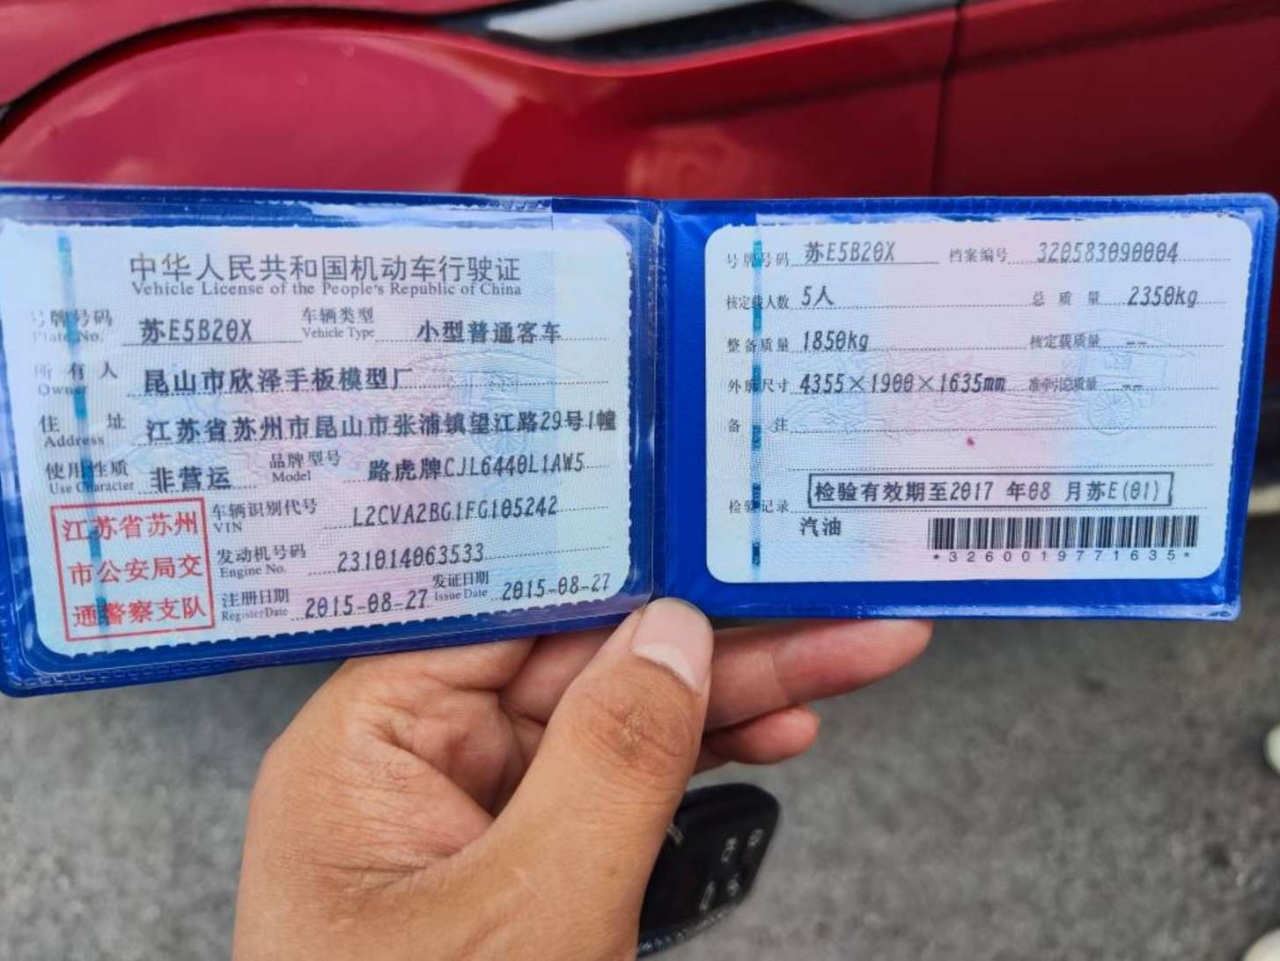 中华人民共和国机动车行驶证
Vehicle License of the People's Republic of China
号牌号码 苏E5B20X 车辆类型 小型普通客车
Plate No. Vehicle Type
所有人 昆山市欣泽手板模型厂
Owner
住址 江苏省苏州市昆山市张浦镇望江路29号1幢
Address
使用性质 非营运 品牌型号 路虎牌CJL6440L1AW5
Use Character Model
江苏省苏州
市公安局交
通警察支队
车辆识别代号 L2CVA2BG1FG105242
VIN
发动机号码 231014063533
Engine No.
注册日期 2015-08-27 发证日期 2015-08-27
Register Date Issue Date
号牌号码 苏E5B20X 档案编号 320583090004
核定载人数 5人 总质量 2350kg
整备质量 1850kg 核定载质量 --
外廓尺寸 4355×1900×1635mm 准牵引总质量 --
备注
检验记录 检验有效期至2017年08月苏E(01)
汽油
*3260019771635*